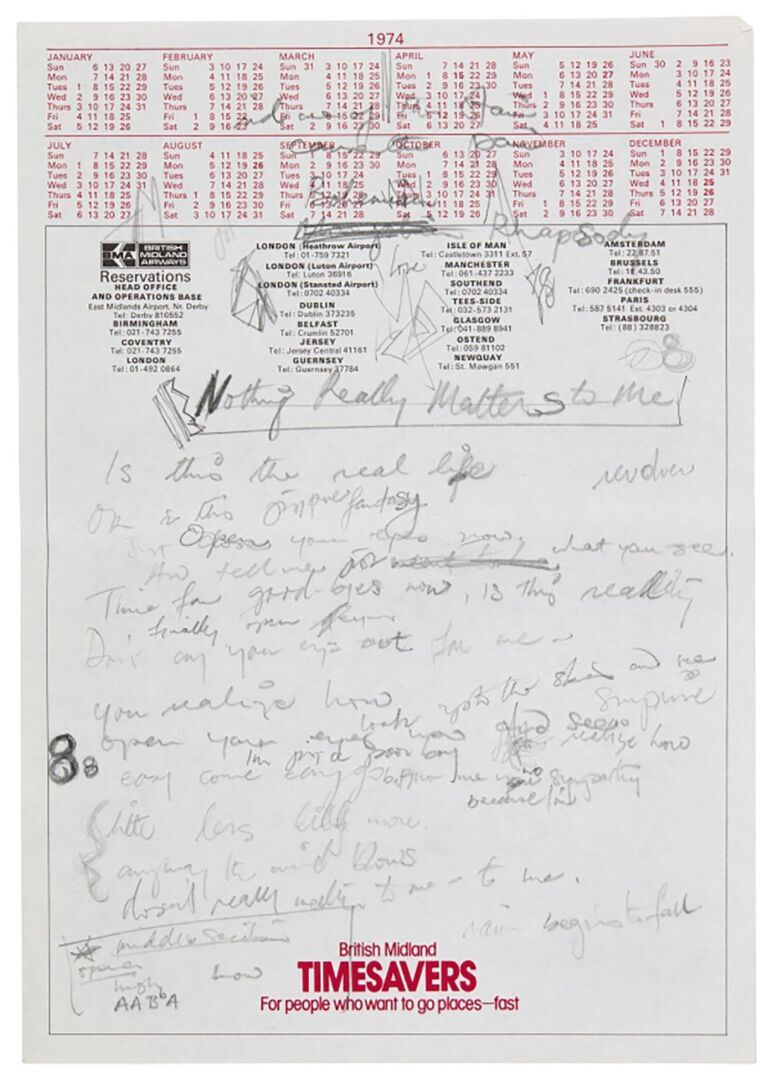 1974
JANUARY
Sun 6 13 20 27
Mon 7 14 21 28
Tues 1 8 15 22 29
Wed 2 9 16 23 30
Thurs 3 10 17 24 31
Fri 4 11 18 25
Sat 5 12 19 26
FEBRUARY
Sun 3 10 17 24
Mon 4 11 18 25
Tues 5 12 19 26
Wed 6 13 20 27
Thurs 7 14 21 28
Fri 1 8 15 22
Sat 2 9 16
MARCH
Sun 31 3 10 17 24
Mon 4 11 18 25
Tues 5 12 19 26
Wed 6 13 20 27
Thurs 7 14 21 28
Fri 1 8 15 22 29
Sat 2 9 16 23 30
APRIL
Sun 7 14 21 28
Mon 1 8 15 22 29
Tues 2 9 16 23 30
Wed 3 10 17 24
Thurs 4 11 18 25
Fri 5 12 19 26
Sat 6 13 20 27
MAY
Sun 5 12 19 26
Mon 6 13 20 27
Tues 7 14 21 28
Wed 1 8 15 22 29
Thurs 2 9 16 23 30
Fri 3 10 17 24 31
Sat 4 11 18 25
JUNE
Sun 30 2 9 16 23
Mon 3 10 17 24
Tues 4 11 18 25
Wed 5 12 19 26
Thurs 6 13 20 27
Fri 7 14 21 28
Sat 1 8 15 22 29
JULY
Sun 7 14 21 28
Mon 1 8 15 22 29
Tues 2 9 16 23 30
Wed 3 10 17 24 31
Thurs 4 11 18 25
Fri 5 12 19 26
Sat 6 13 20 27
AUGUST
Sun 4 11 18 25
Mon 5 12 19 26
Tues 6 13 20 27
Wed 7 14 21 28
Thurs 1 8 15 22 29
Fri 2 9 16 23 30
Sat 3 10 17 24 31
SEPTEMBER
Sun 1 8 15 22 29
Mon 2 9 16 23 30
Tues 3 10 17 24
Wed 4 11 18 25
Thurs 5 12 19 26
Fri 6 13 20 27
Sat 7 14 21 28
OCTOBER
Sun 6 13 20 27
Mon 7 14 21 28
Tues 1 8 15 22 29
Wed 2 9 16 23 30
Thurs 3 10 17 24 31
Fri 4 11 18 25
Sat 5 12 19 26
NOVEMBER
Sun 3 10 17 24
Mon 4 11 18 25
Tues 5 12 19 26
Wed 6 13 20 27
Thurs 7 14 21 28
Fri 1 8 15 22 29
Sat 2 9 16 23 30
DECEMBER
Sun 1 8 15 22 29
Mon 2 9 16 23 30
Tues 3 10 17 24 31
Wed 4 11 18 25
Thurs 5 12 19 26
Fri 6 13 20 27
Sat 7 14 21 28
Bohemian
Rhapsody
BMA BRITISH MIDLAND AIRWAYS
Reservations
HEAD OFFICE
AND OPERATIONS BASE
East Midlands Airport, Nr. Derby
Tel: Derby 810552
BIRMINGHAM
Tel: 021-743 7255
COVENTRY
Tel: 021-743 7255
LONDON
Tel: 01-492 0864
LONDON (Heathrow Airport)
Tel: 01-759 7321
LONDON (Luton Airport)
Tel: Luton 36916
LONDON (Stansted Airport)
Tel: 0702 40334
DUBLIN
Tel: Dublin 373235
BELFAST
Tel: Crumlin 52701
JERSEY
Tel: Jersey Central 41161
GUERNSEY
Tel: Guernsey 37784
Love
ISLE OF MAN
Tel: Castletown 3311 Ext. 57
MANCHESTER
Tel: 061-437 2233
SOUTHEND
Tel: 0702 40334
TEES-SIDE
Tel: 032-573 2131
GLASGOW
Tel: 041-889 8941
OSTEND
Tel: 059 81102
NEWQUAY
Tel: St. Mawgan 551
AMSTERDAM
Tel: 22.87.51
BRUSSELS
Tel: 18.43.50
FRANKFURT
Tel: 690 2425 (check-in desk 555)
PARIS
Tel: 587 5141 Ext. 4303 or 4304
STRASBOURG
Tel: (88) 328823
Nothing Really Matters to Me
Is this the real life
is this fantasy
Just Open your eyes now. what you see.
And tell me
Time for good-byes now, is this reality
finally open
your eyes out for me
you realize how look up to the skies and see
open your eyes now
realize how
I'm just a poor boy
easy come easy go
no sympathy
because I'm
little less little more.
anyway the wind blows
doesn't really matter to me - to me.
rain begins to fall
middle section
opera
AABA
British Midland
TIMESAVERS
For people who want to go places—fast